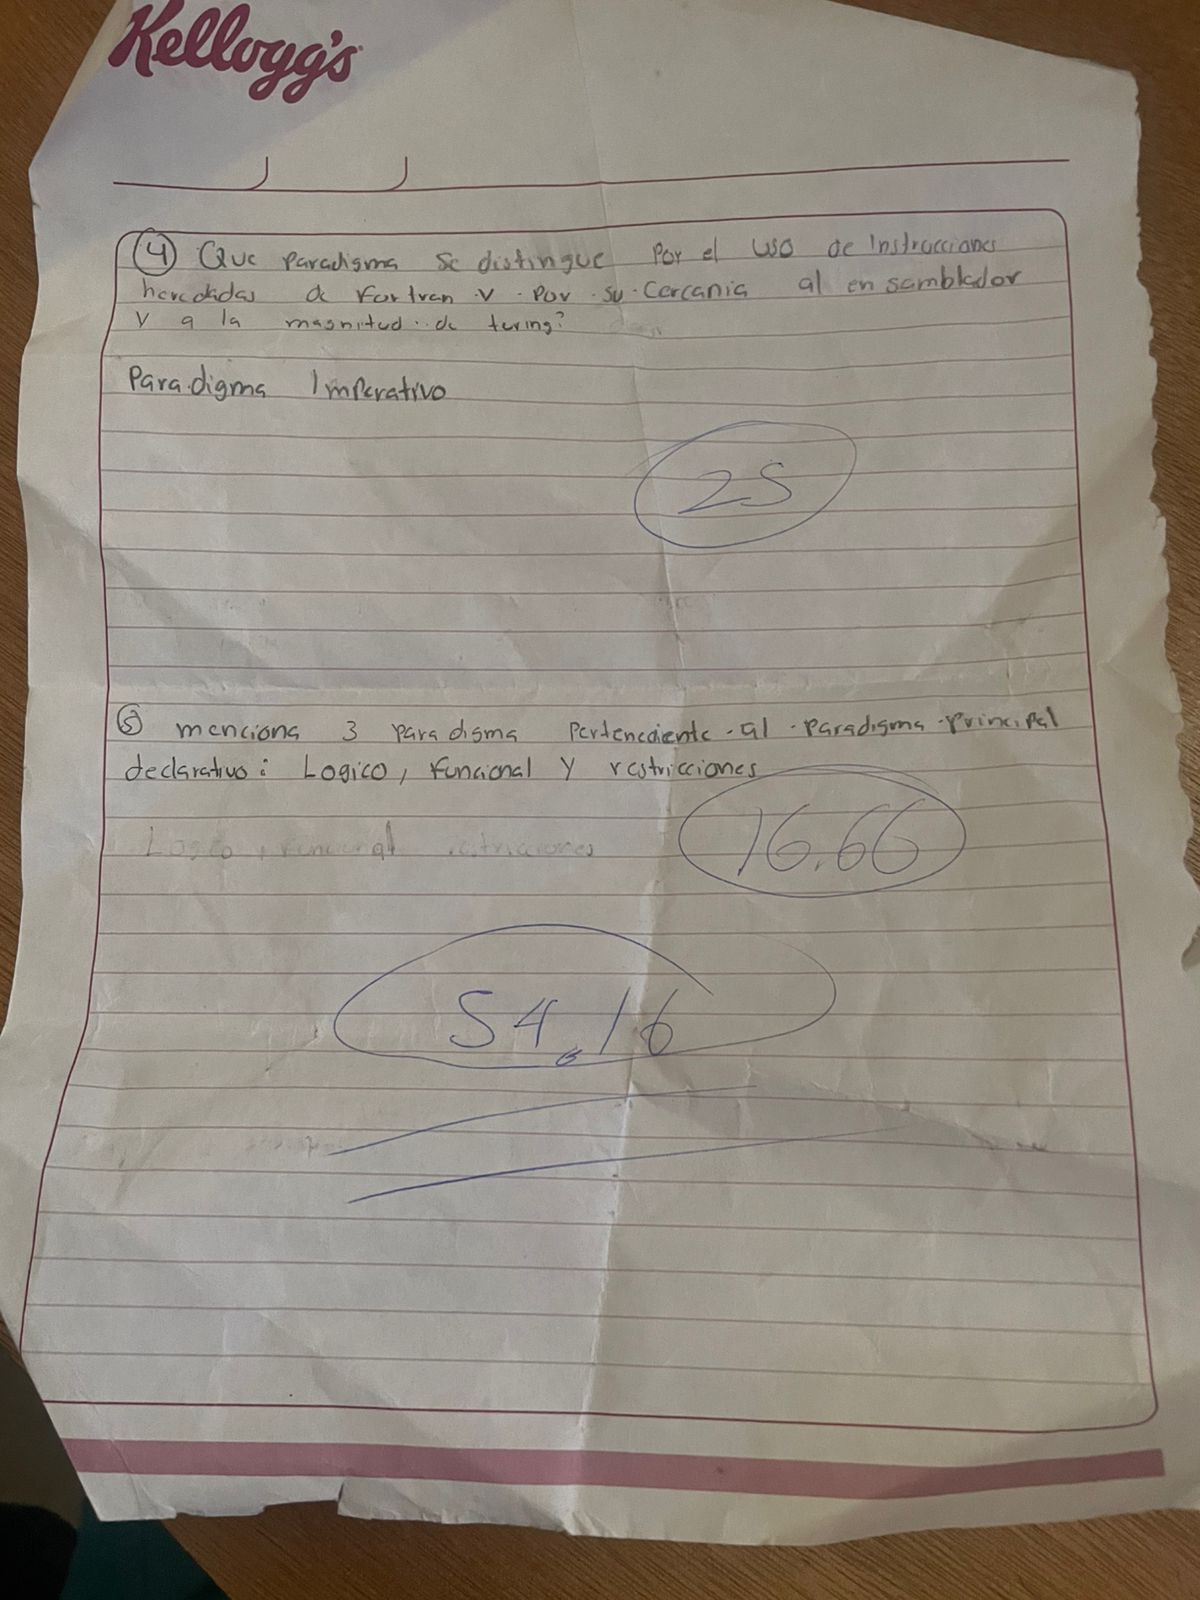 Kellogg's
④ Que paradigma se distingue por el uso de Instrucciones
heredadas de Fortran y por su cercania al ensamblador
y a la magnitud de turing?
Paradigma Imperativo
25
⑤ menciona 3 paradigma Pertenecdiente al paradigma principal
declarativo: Logico, funcional y restricciones
16.66
Logico, funcional restricciones
54.16